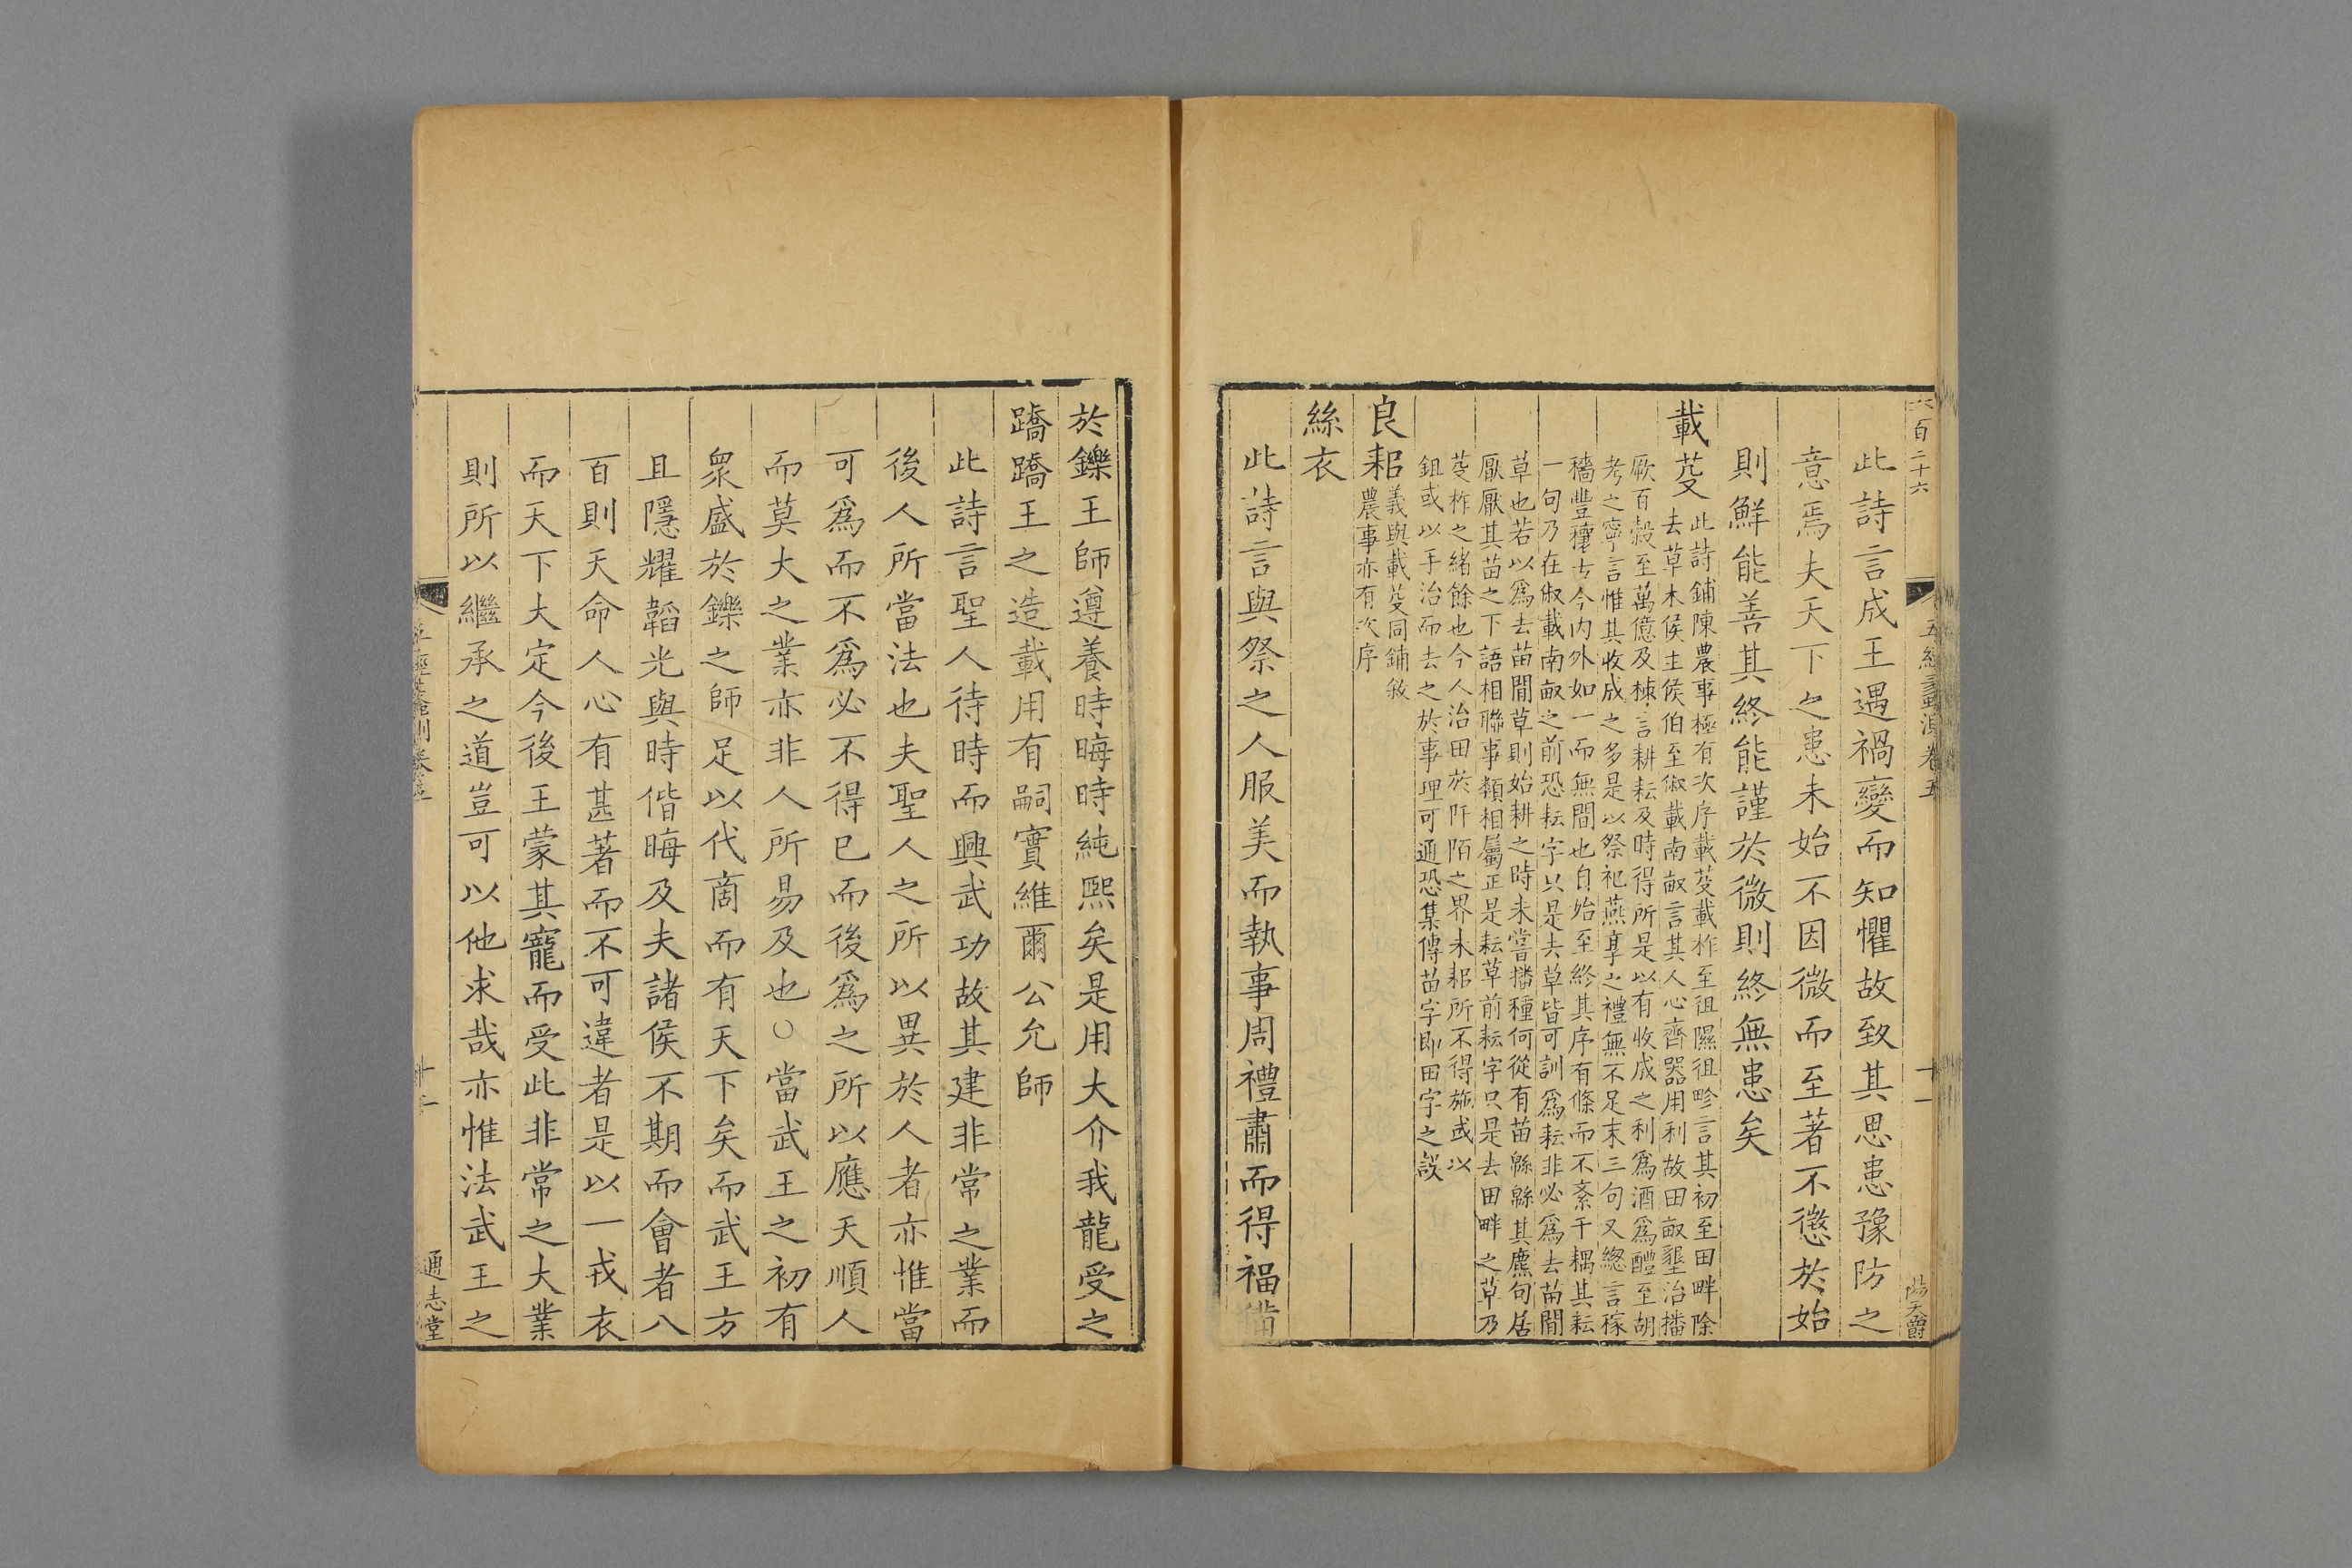 六百二十六
五經蠡測卷五
十一
此詩言成王遇禍變而知懼故致其思患豫防之
意焉夫天下之患未始不因微而至著不懲於始
則鮮能善其終能謹於微則終無患矣
載芟
此詩鋪陳農事極有次序載芟載柞至徂隰徂畛言其初至田畔除
去草木侯主侯伯至俶載南畝言其人心齊器用利故田畝墾治播
厥百穀至萬億及秭言耕耘及時得所是以有收成之利為酒為醴至胡
考之寧言惟其收成之多是以祭祀燕享之禮無不足末三句又緫言稼
穡豐穰古今內外如一而無間也自始至終其序有條而不紊千耦其耘
一句乃在俶載南畝之前恐耘字只是去草皆可訓為耘非必為去苗間
草也若以為去苗間草則始耕之時未嘗播種何從有苗緜緜其麃句居
厭厭其苗之下語相聯事類相屬正是耘草前耘字只是去田畔之草乃
芟柞之緒餘也今人治田於阡陌之界耒耜所不得施或以
鉏或以手治而去之於事理可通恐集傳苗字即田字之誤
良耜
義與載芟同鋪敘
農事亦有次序
絲衣
此詩言與祭之人服美而執事周禮肅而得福備
於鑠王師遵養時晦時純熙矣是用大介我龍受之
蹻蹻王之造載用有嗣實維爾公允師
此詩言聖人待時而興武功故其建非常之業而
後人所當法也夫聖人之所以異於人者亦惟當
可為而不為必不得已而後為之所以應天順人
而莫大之業亦非人所易及也○當武王之初有
衆盛於鑠之師足以代商而有天下矣而武王方
且隱耀韜光與時偕晦及夫諸侯不期而會者八
百則天命人心有甚著而不可違者是以一戎衣
而天下大定今後王蒙其寵而受此非常之大業
則所以繼承之道豈可以他求哉亦惟法武王之
通志堂